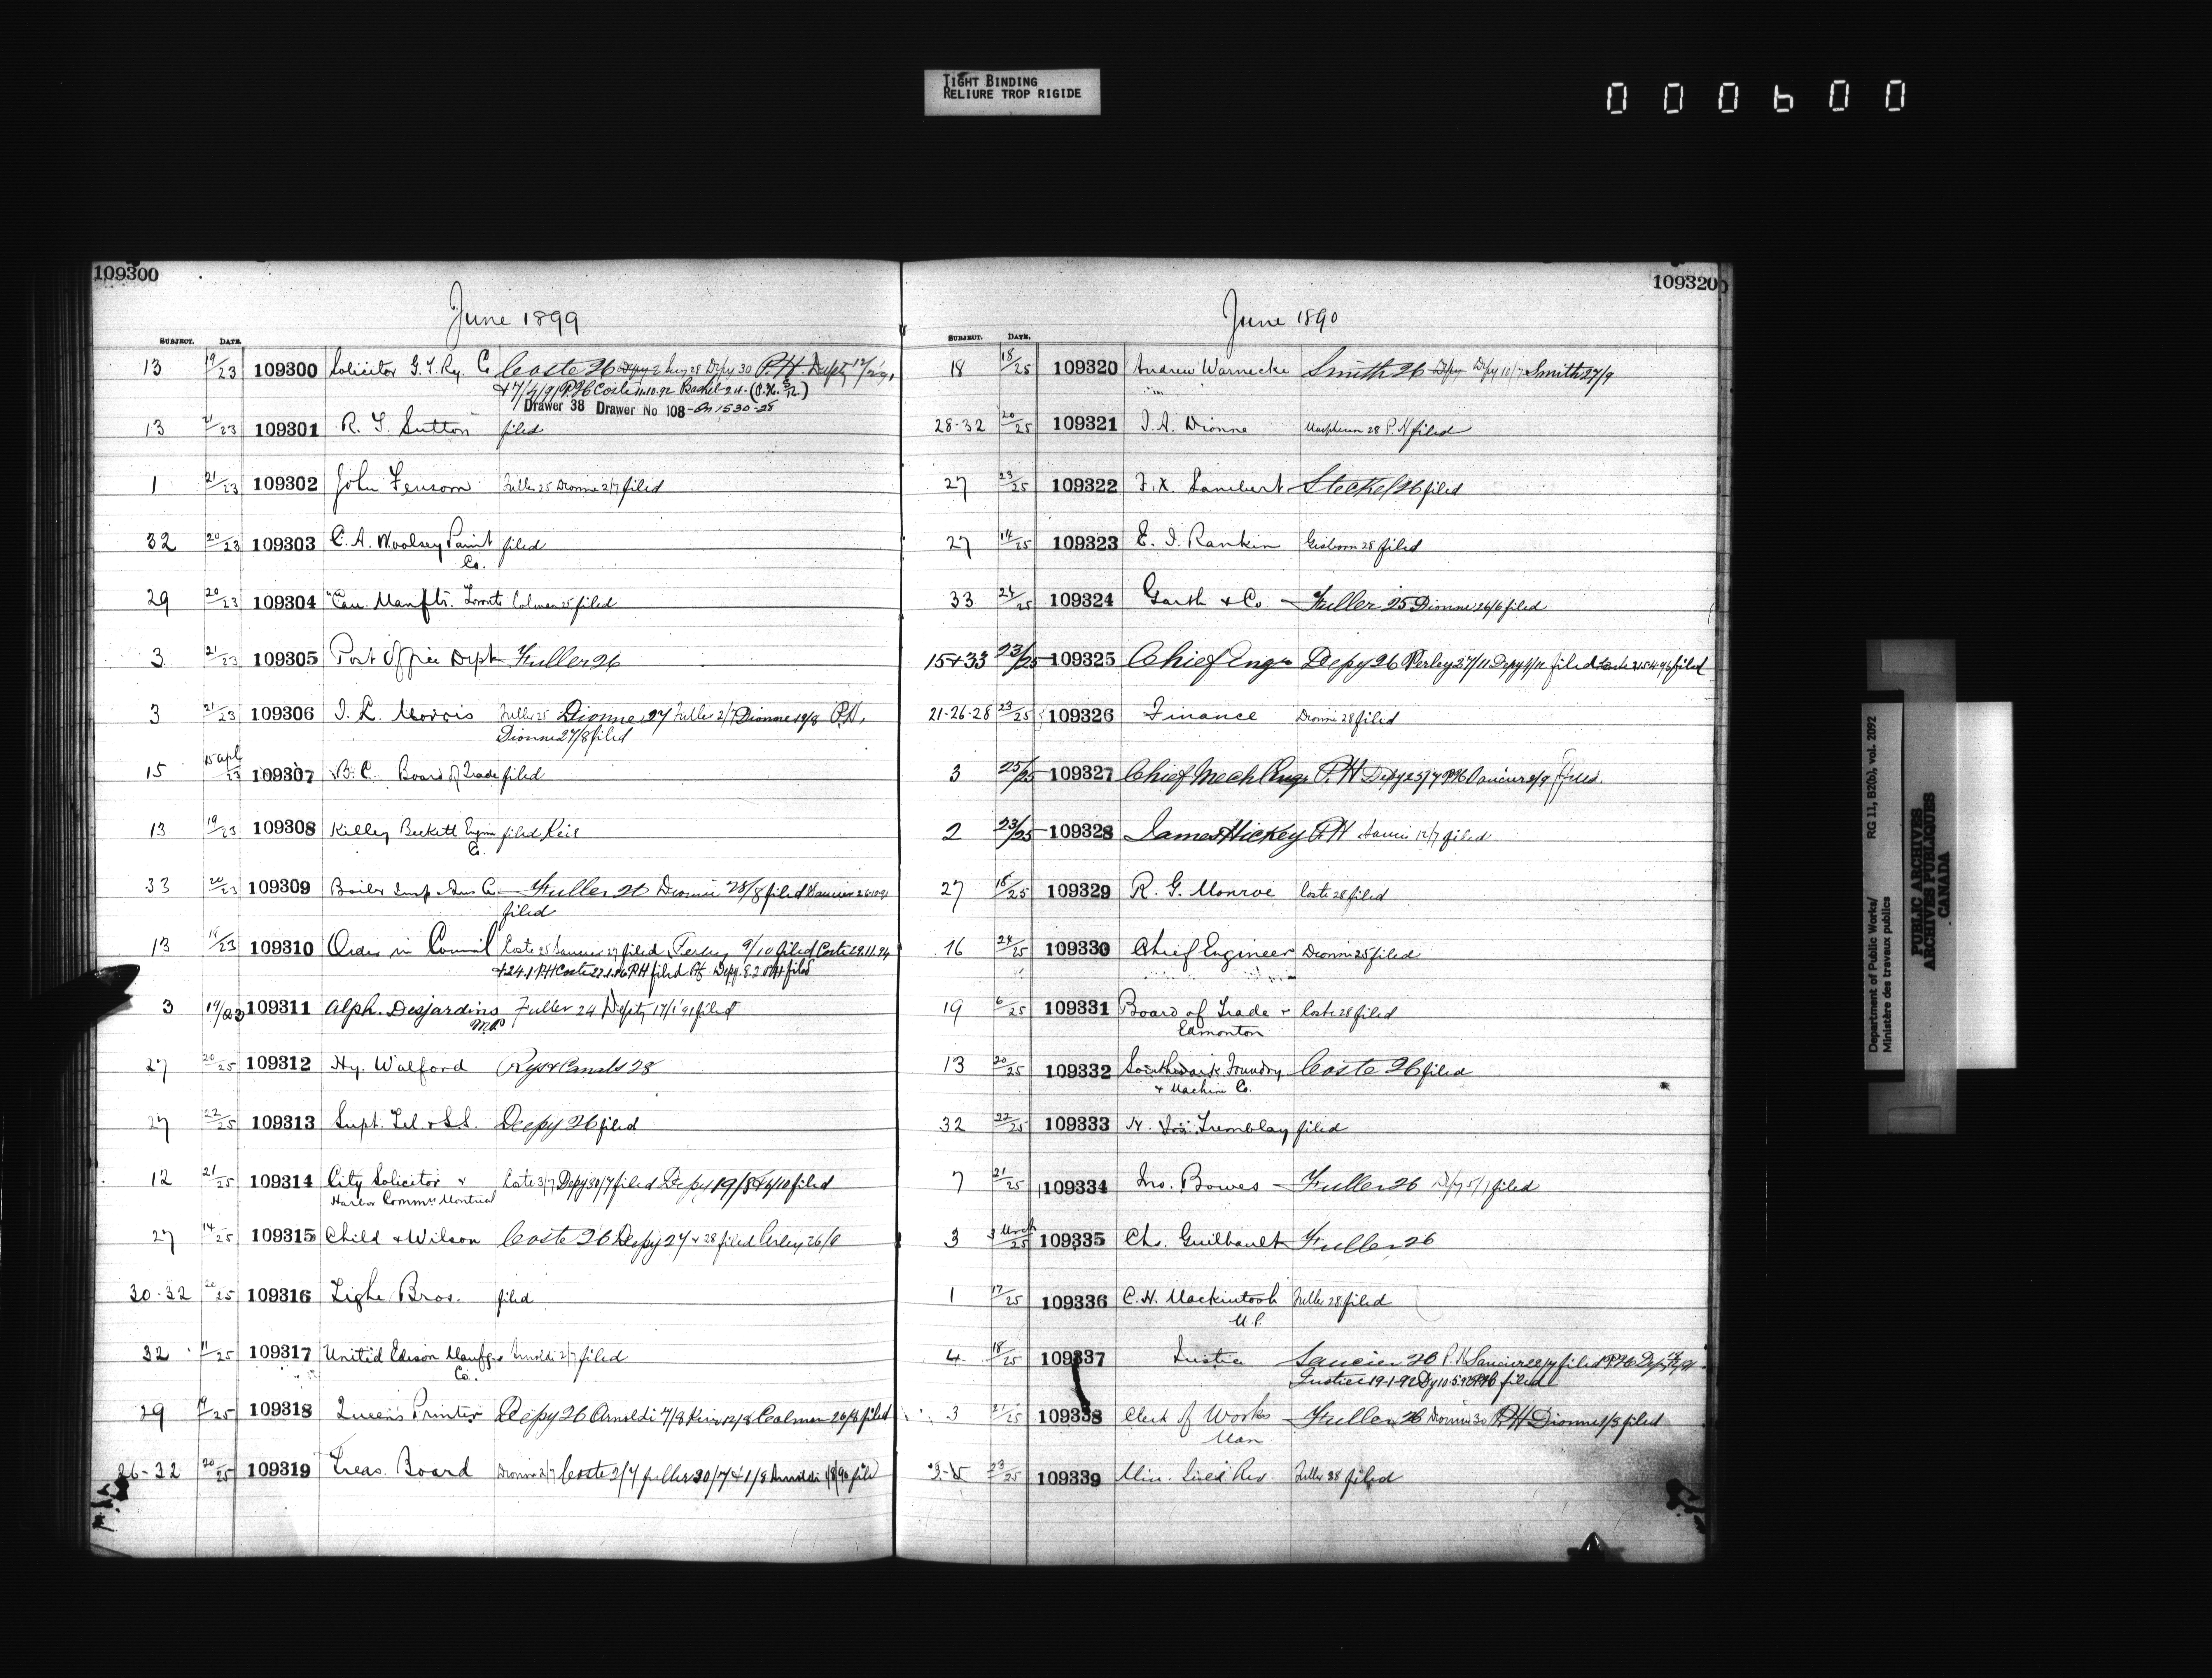 TIGHT BINDING
RELIURE TROP RIGIDE
000600
109300
June 1899
SUBJECT. DATE.
13 19/23 109300 Solicitor G. T. Ry. Co Coste 26 Depy 30 P.H. Depty
Drawer 38 Drawer No 108
13 23 109301 R. T. Sutton filed
1 21/23 109302 John Fensom Fuller 25 Dionne 2/7 filed
32 20/23 109303 C. A. Woolsey Paint filed
Co.
29 20/23 109304 Can. Manftr. Toronto Colmer 25 filed
3 21/23 109305 Post Office Dept Fuller 26
3 21/23 109306 J. L. Morris Fuller 25 Dionne 27 Fuller 2/7 Dionne 19/8 P.H.
Dionne 27/8 filed
15 15 Apl/23 109307 B. C. Board of Trade filed
13 19/23 109308 Killey Beckett Engin filed
Co.
33 20/23 109309 Boiler Insp. Ins Co Fuller 26 Dionne 28/8 filed
filed
13 18/23 109310 Order in Council Coste 25 Saucier 27 filed Perley 9/10 filed
3 19/23 109311 Alph. Desjardins Fuller 24 Depty 17/1/91 filed
M.P
27 20/25 109312 Hy. Walford Rys & Canals 28
27 22/25 109313 Supt. Tel. & S.S. Depy 26 filed
12 21/25 109314 City Solicitor & Coste 3/7 Depy 30/7 filed Depy 19/8 filed
Harbor Commrs Montreal
27 14/25 109315 Child & Wilson Coste 26 Depy 27 & 28 filed
30-32 20/25 109316 Tighe Bros. filed
32 11/25 109317 United Edison Manfg Arnoldi 2/7 filed
Co.
29 25 109318 Queen's Printer Depy 26 Arnoldi 7/8 12/8 Colmer 26/8 filed
26-32 20/25 109319 Treas. Board Dionne 2/7 Coste 2/7 Fuller 30/7 & 1/8 Arnoldi filed
109320
June 1890
SUBJECT. DATE.
18 18/25 109320 Andrew Warnecke Smith 26 Depy 10/7 Smith 27/9
28-32 20/25 109321 J. A. Dionne Macpherson 28 P.H filed
27 23/25 109322 F. X. Lambert Steckel 26 filed
27 14/25 109323 E. J. Rankin Gisborn 28 filed
33 24/25 109324 Garth & Co. Fuller 25 Dionne 26/6 filed
15+33 23/25 109325 Chief Engr Depy 26 Perley 27/11 Depy filed filed
21-26-28 23/25 109326 Finance Dionne 28 filed
3 25/25 109327 Chief Mech Engr P.H Depy 25/7 P.H. Saucier filed
2 23/25 109328 James Hickey P.H Saucier 12/7 filed
27 18/25 109329 R. G. Monroe Coste 28 filed
16 24/25 109330 Chief Engineer Dionne 25 filed
19 6/25 109331 Board of Trade Coste 28 filed
Edmonton
13 20/25 109332 Southwark Foundry Coste 26 filed
& Machine Co.
32 22/25 109333 N. Tremblay filed
7 21/25 109334 Jno. Bowes Fuller 26 Depy 5/7 filed
3 3 March/25 109335 Chs. Guilbault Fuller 26
1 17/25 109336 C. H. Mackintosh Fuller 28 filed
M.P.
4 18/25 109337 Justice Saucier 26 P.H. Saucier filed
Justice 19-1-92 filed
3 21/25 109338 Clerk of Works Fuller 26 Dionne 30 P.H Dionne filed
Man
3-5 23/25 109339 Min. Inld Rev. Fuller 28 filed
Department of Public Works/ RG 11, B2(b), vol. 2092
Ministère des travaux publics
PUBLIC ARCHIVES
ARCHIVES PUBLIQUES
CANADA